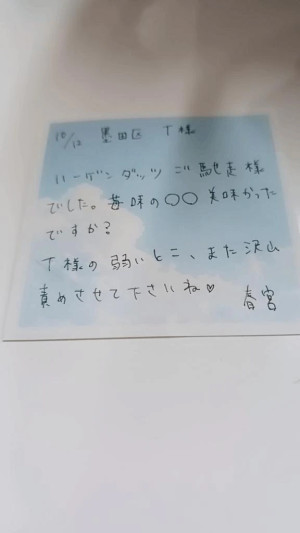 10/12 墨田区 T様
ハーゲンダッツ ご馳走様
でした。苺味の○○ 美味かった
ですか?
T様の弱いとこ、また沢山
責めさせて下さいね♡ 春宮